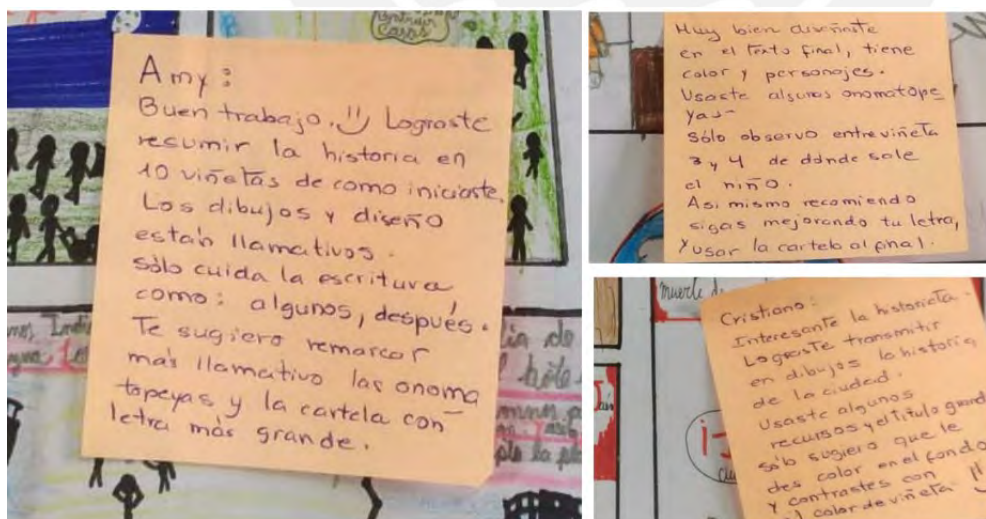 construir
casas
Amy:
Buen trabajo. Lograste
resumir la historia en
10 viñetas de como iniciaste.
Los dibujos y diseño
están llamativos.
sólo cuida la escritura
como: algunos, después.
Te sugiero remarcar
más llamativo las onoma
topeyas y la cartela con
letra más grande.
Muy bien diseñaste
en el texto final, tiene
color y personajes.
Usaste algunas onomatope
yas-
Sólo observo entre viñeta
3 y 4 de dónde sale
el niño.
Asi mismo recomiendo
sigas mejorando tu letra,
y usar la cartela al final.
muerte
Cristiano:
Interesante la historieta.
Lograste transmitir
en dibujos la historia
de la ciudad.
Usaste algunos
recursos y el título grande
sólo sugiero que le
des color en el fondo
y contrastes con
el color de viñeta